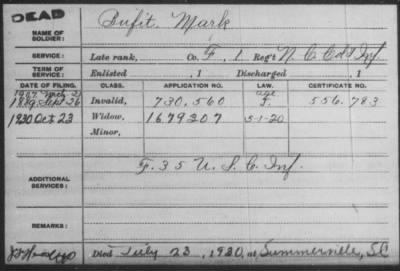 DEAD
Bufit, Mark
NAME OF SOLDIER:
SERVICE: Late rank, Co. F, 1 Reg't N.C. Col'd Inf.
TERM OF SERVICE: Enlisted , 1 Discharged , 1
DATE OF FILING. CLASS. APPLICATION NO. LAW. CERTIFICATE NO.
1907 Mch 21 age
1889 Sept 26 Invalid, 730,560 F. 556,783
1920 Oct 23 Widow, 1679207 5-1-20
Minor,
ADDITIONAL SERVICES: F. 35 U.S.C. Inf.
REMARKS:
Died July 23, 1920, at Summerville, SC